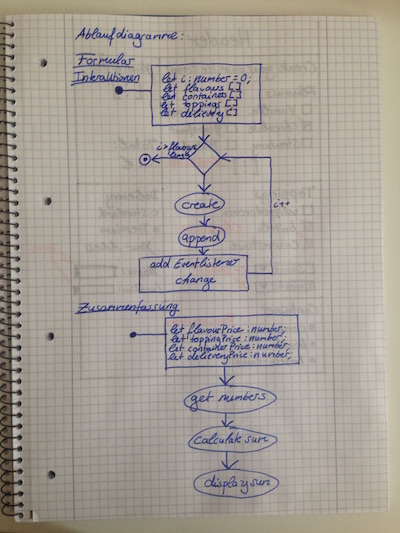 Ablaufdiagramme:
Formular
Interaktionen
let i: number = 0;
let flavours []
let containers []
let toppings []
let delievery []
i > flavours.
length
create
i++
append
add Eventlistener
change
Zusammenfassung
let flavourPrice: number;
let toppingPrice: number;
let containerPrice: number;
let delieveryPrice: number;
get numbers
calculate sum
display sum